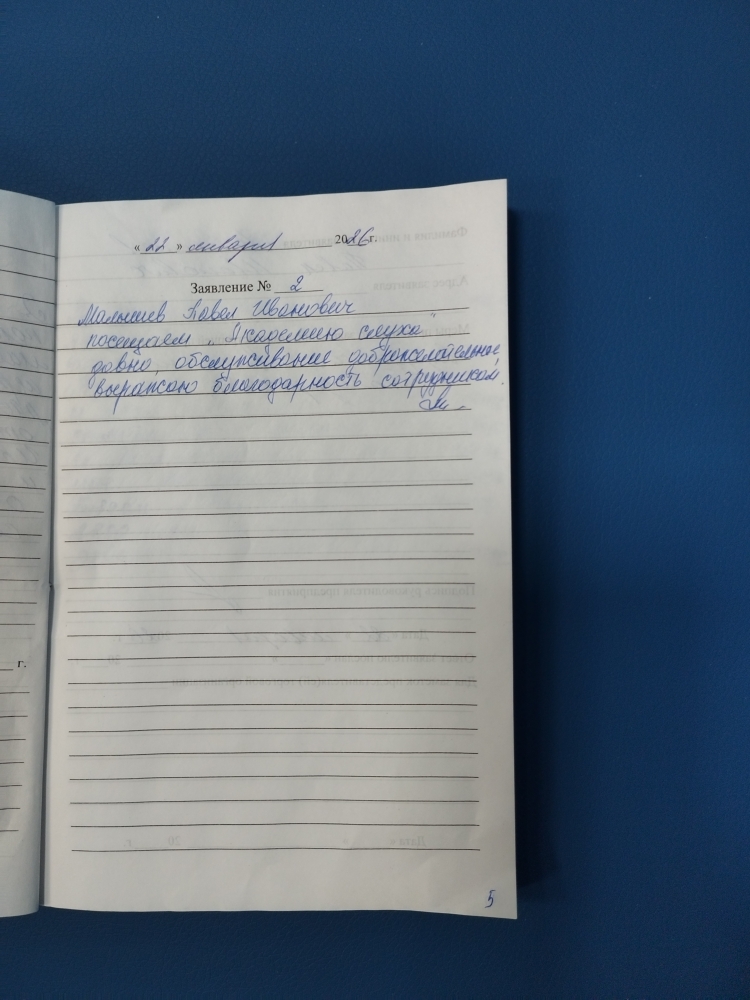 « 22 » января 2026г.
Заявление № 2
Малышев Павел Иванович
посещаем „Академию слуха"
давно, обслуживание доброжелательное,
выражаю благодарность сотрудникам.
г.
5